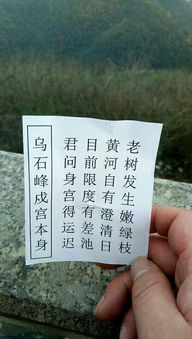 老树发生嫩绿枝
黄河自有澄清日
目前限度有差池
君问身宫得运迟
乌石峰戍宫本身